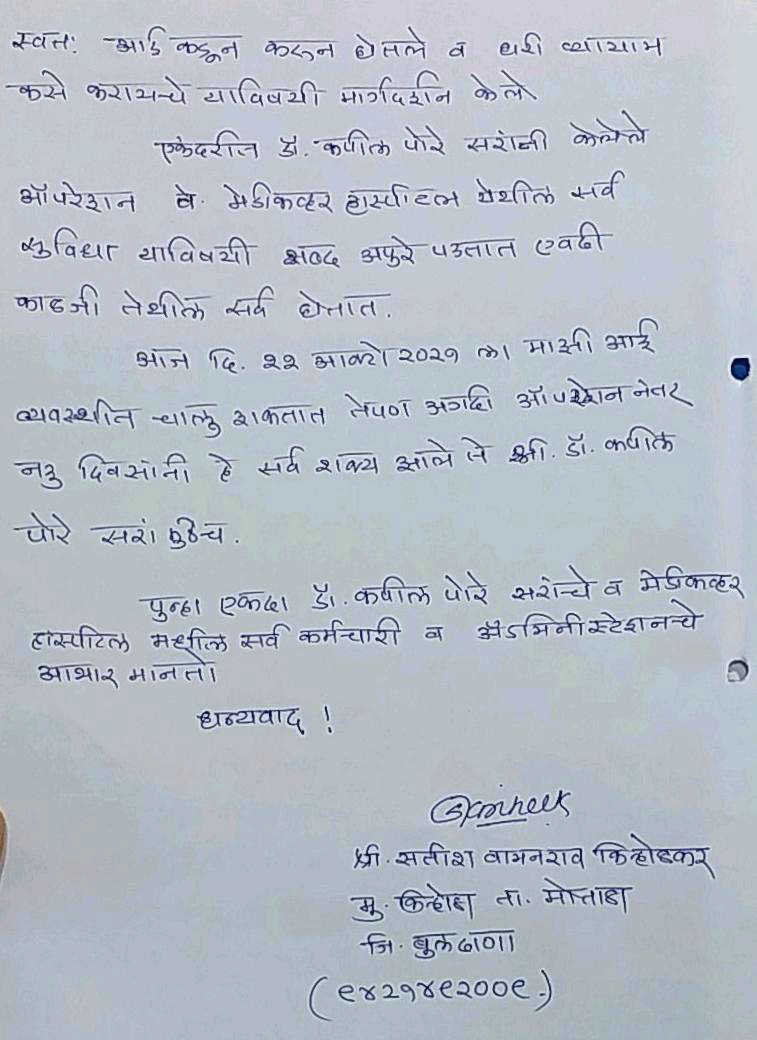 स्वतः आई कडून करून घेतले व घरी व्यायाम
कसे करायचे याविषयी मार्गदर्शन केले
एकंदरीत डॉ. कपील पोरे सरांनी केलेले
ऑपरेशन व. मेडीकव्हर हास्पीटल येथील सर्व
सुविधा याविषयी शब्द अपुरे पडतात एवढी
काळजी तेथील सर्व घेतात.
आज दि. २२ आक्टो २०२१ ला माझी आई
व्यवस्थीत चालु शकतात तेपण अगदी ऑपरेशन नंतर
नऊ दिवसांनी हे सर्व शक्य झाले ते श्री. डॉ. कपील
पोरे सरां मुळेच.
पुन्हा एकदा डॉ. कपील पोरे सरांचे व मेडीकव्हर
हास्पीटल मधील सर्व कर्मचारी व ॲडमिनीस्टेशनचे
आभार मानतो
धन्यवाद !
श्री. सतीश वामनराव किन्होळकर
मु. किन्होळा ता. मोताळा
जि. बुलढाणा
(९४२१४९२००९.)